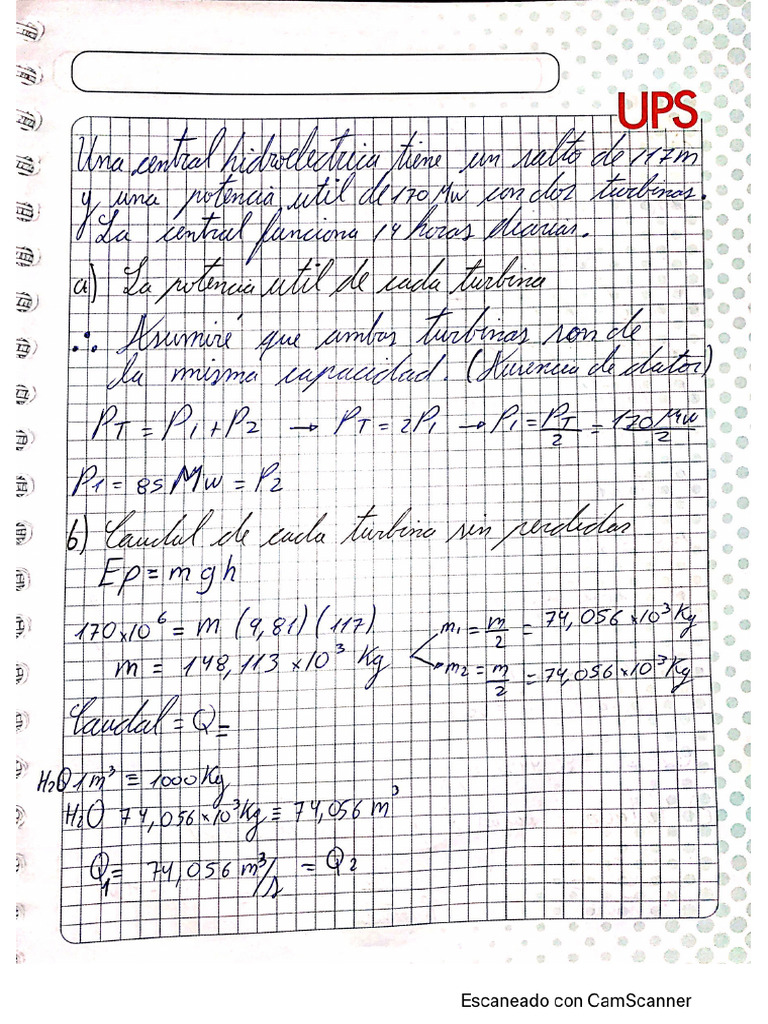 UPS
Una central hidroelectrica tiene un salto de 117m
y una potencia util de 170 Mw con dos turbinas.
La central funciona 14 horas diarias.
a) La potencia util de cada turbina
∴ Asumiré que ambas turbinas son de
la misma capacidad. (Ausencia de datos)
PT = P1 + P2 → PT = 2P1 → P1 = PT/2 = 170 Mw/2
P1 = 85 Mw = P2
b) Caudal de cada turbina sin perdidas
Ep = m g h
170 x 10^6 = m (9,81) (117)
m = 148,113 x 10^3 Kg
m1 = m/2 = 74,056 x 10^3 Kg
m2 = m/2 = 74,056 x 10^3 Kg
Caudal = Q =
H2O 1 m³ ≡ 1000 Kg
H2O 74,056 x 10^3 Kg ≡ 74,056 m³
Q1 = 74,056 m³/s = Q2
Escaneado con CamScanner